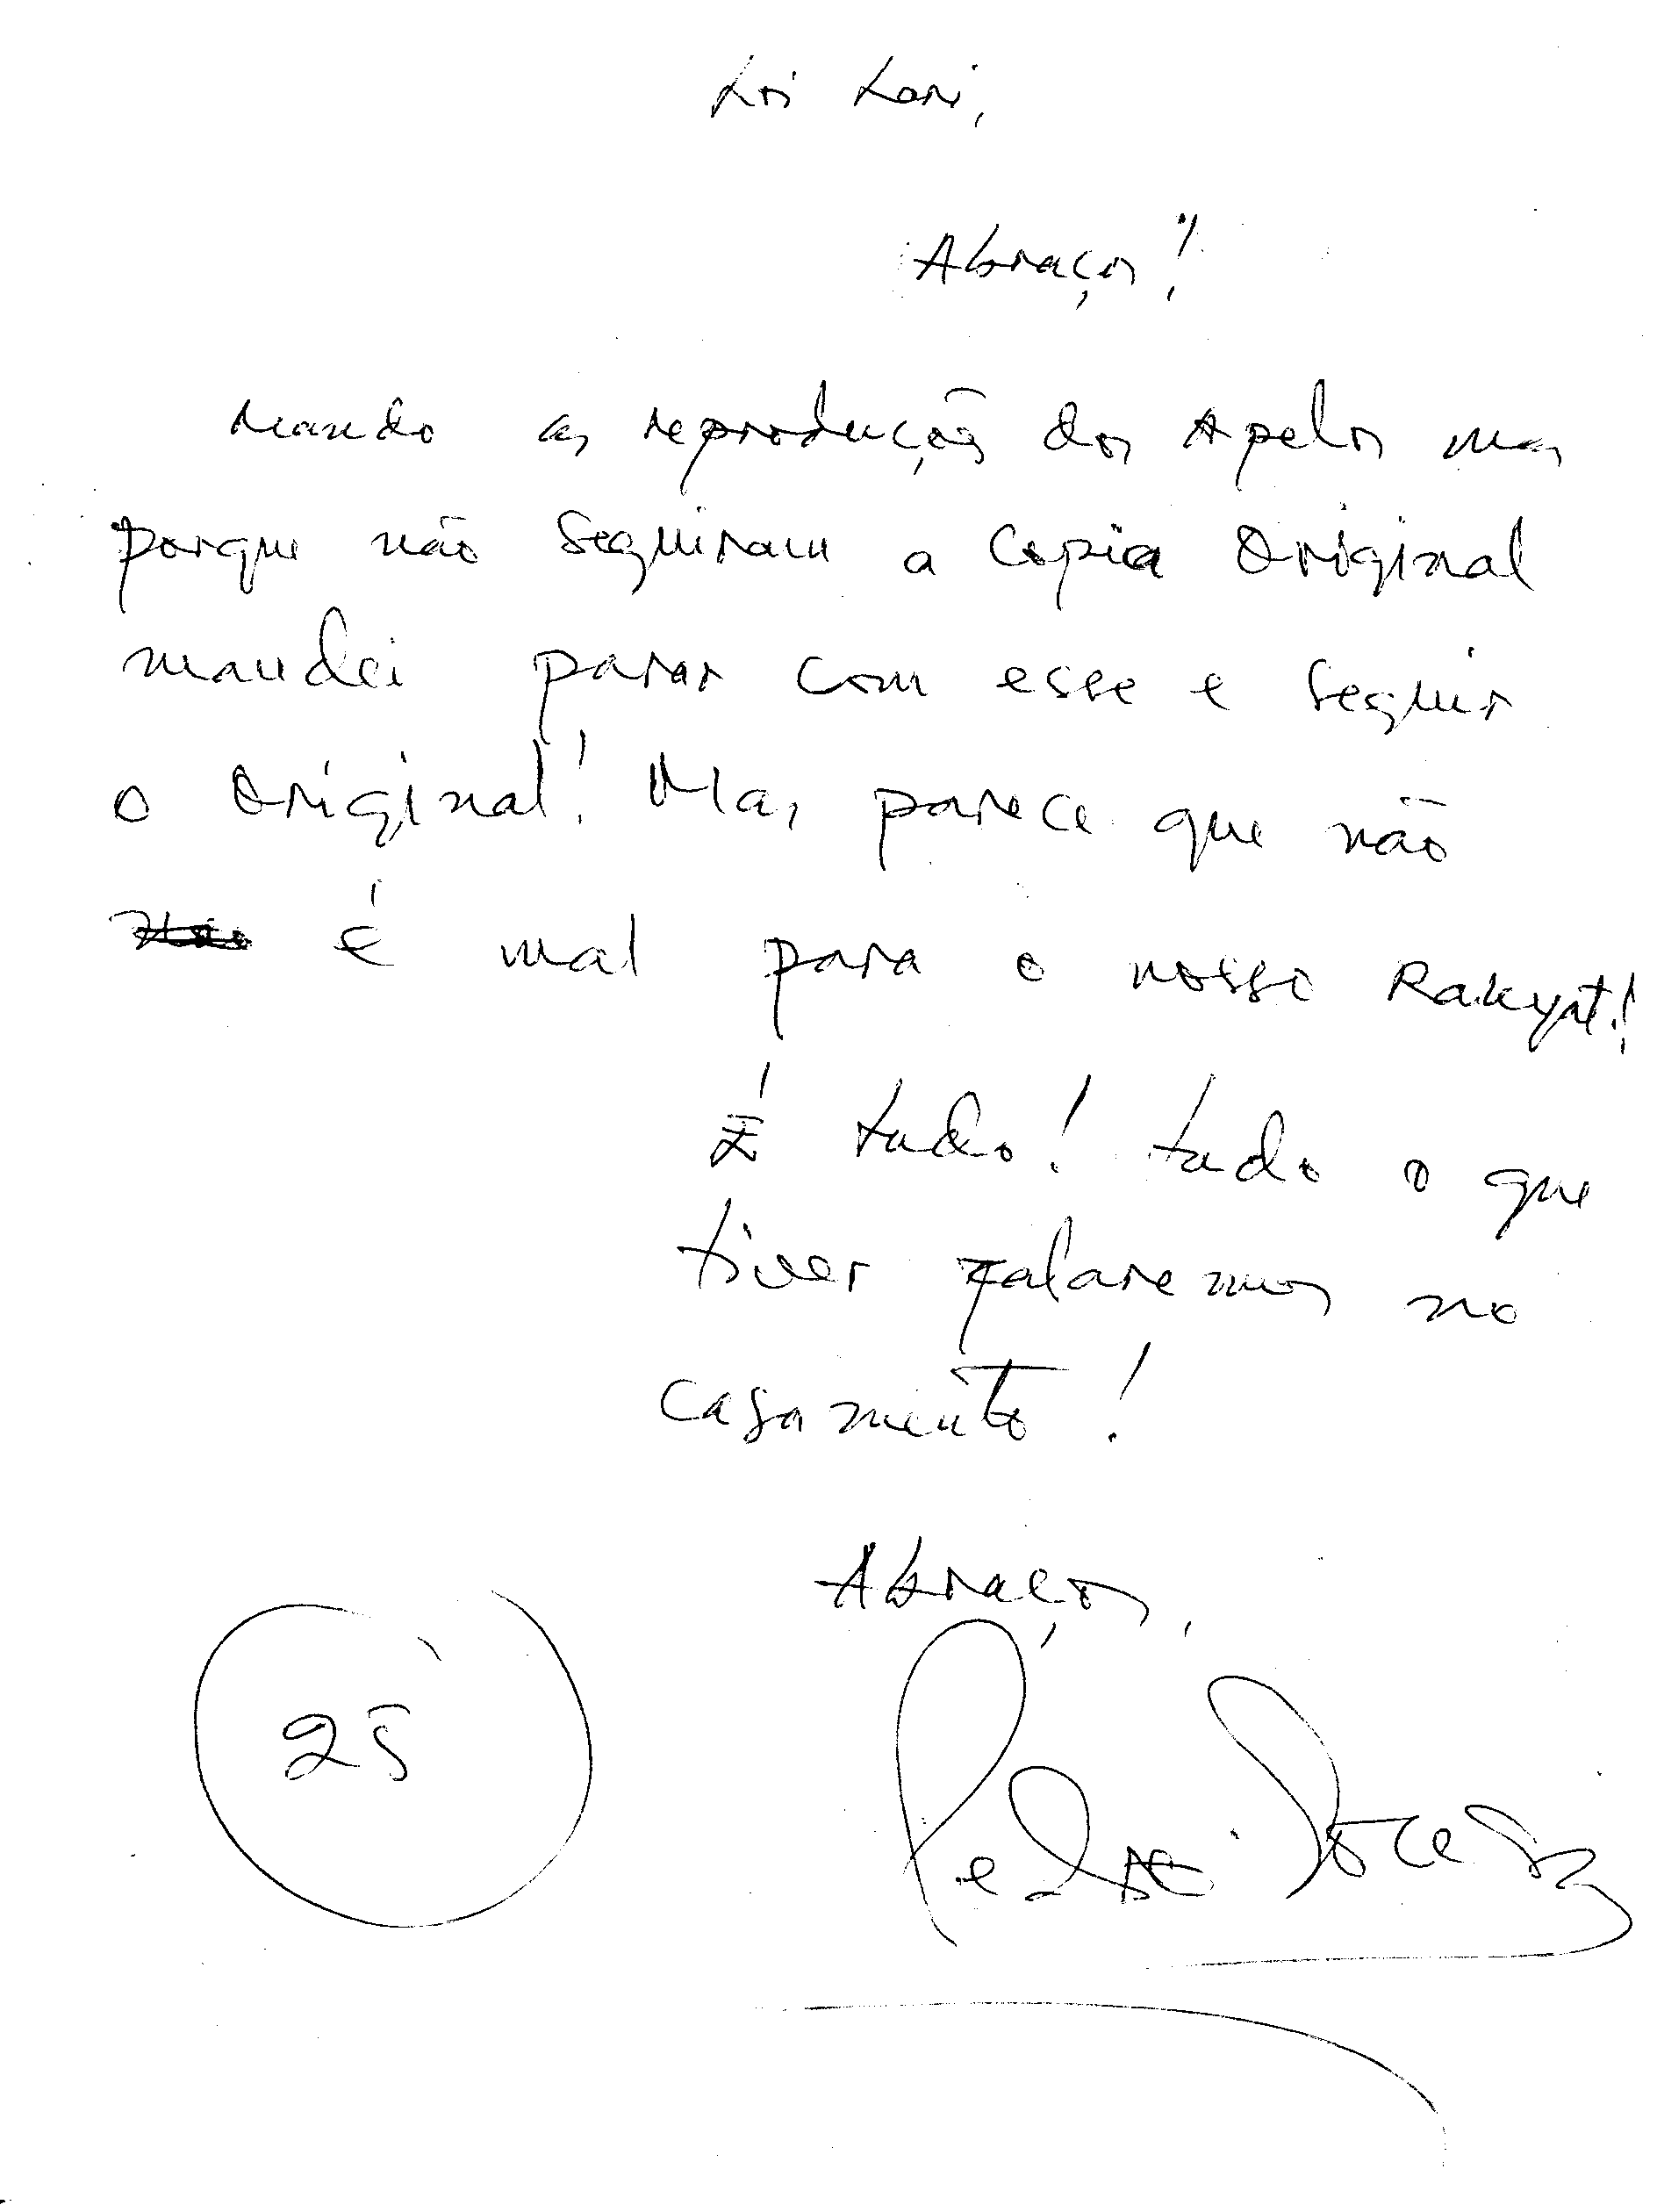 Loi Lari,
Abraços!
Mando as reproduções dos Apelos mas
porque não seguiram a copia Original
mandei parar com esse e seguir
o Original! Mas parece que não
é mal para o nosso Rakyat!
É tudo! tudo o que
tiver falaremos no
casamento!
Abraços,
25
Pedro